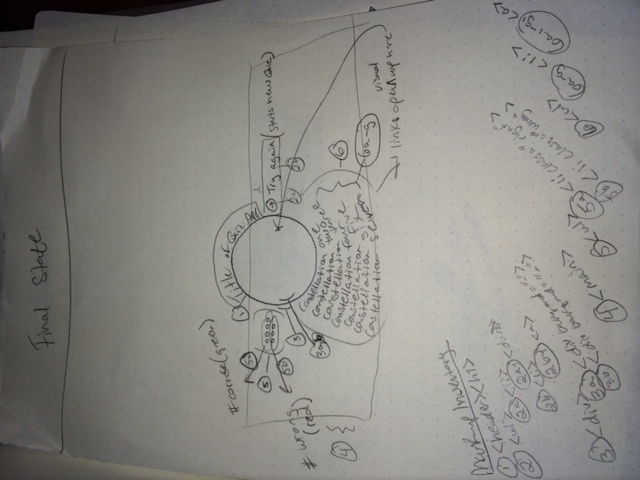 Final State
# correct (green)
1
Title of Quiz App
5a
5
5b
2
→ Try again (starts new Quiz)
2a
2b
# wrong
(red)
3
3a,b
4
Constellation one
Constellation two
Constellation three
Constellation four
Constellation five
Constellation six
Constellation seven
6
6a-g
visual
links open up here
Markup Inventory
1 <header><h1>
2 <ul> 2a <li> <div>
2b <li> <a>
3 <div> 3a <div background="...">
3b <div background="...">
4 <main>
5 <ul> 5a <li class="right">
5b <li class="wrong">
6 <ul> 6a-g <li> <a>